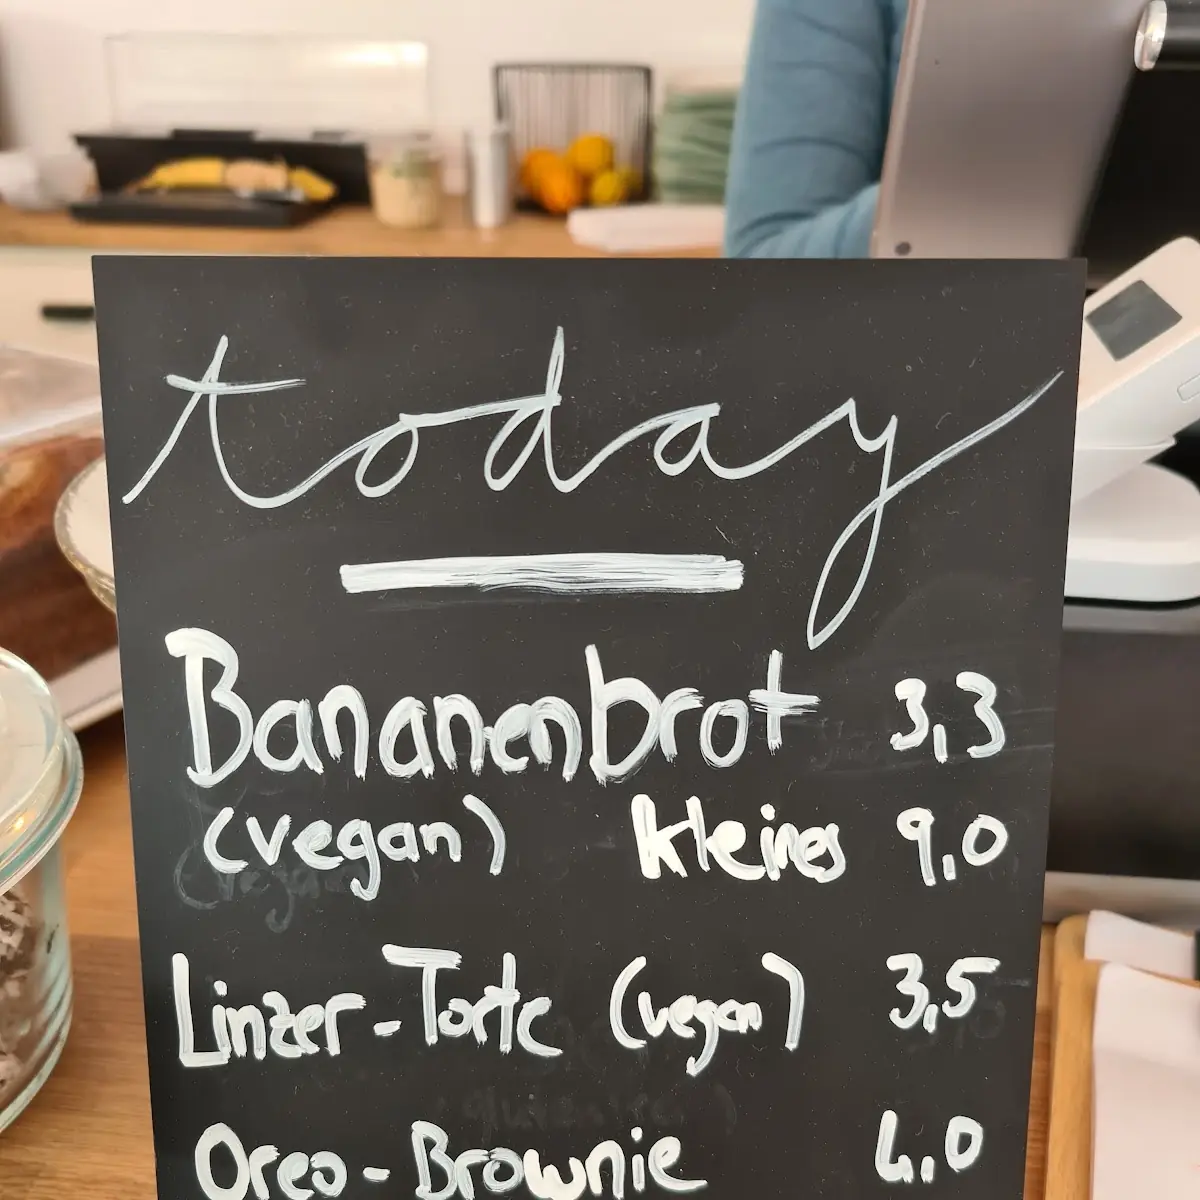 today
Bananenbrot 3,3
(vegan) kleines 9,0
Linzer-Torte (vegan) 3,5
Oreo-Brownie 4,0